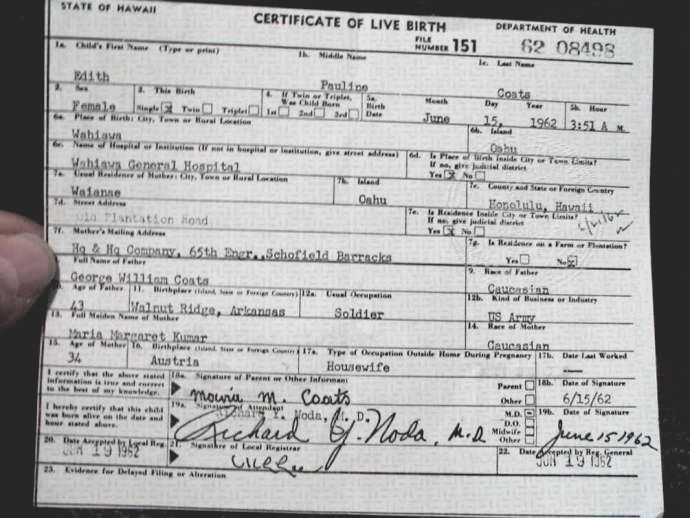 STATE OF HAWAII
CERTIFICATE OF LIVE BIRTH
DEPARTMENT OF HEALTH
FILE NUMBER 151 62 08498
1a. Child's First Name (Type or print) 1b. Middle Name 1c. Last Name
Edith Pauline Coats
2. Sex 3. This Birth 4. If Twin or Triplet, Was Child Born 5a. Birth Date Month Day Year 5b. Hour
Female Single Twin Triplet 1st 2nd 3rd June 15, 1962 3:51 A M.
6a. Place of Birth: City, Town or Rural Location 6b. Island
Wahiawa Oahu
6c. Name of Hospital or Institution (If not in hospital or institution, give street address) 6d. Is Place of Birth Inside City or Town Limits? If no, give judicial district
Wahiawa General Hospital Yes No
7a. Usual Residence of Mother: City, Town or Rural Location 7b. Island 7c. County and State or Foreign Country
Waianae Oahu Honolulu, Hawaii
7d. Street Address 7e. Is Residence Inside City or Town Limits? If no, give judicial district
Old Plantation Road Yes No
7f. Mother's Mailing Address 7g. Is Residence on a Farm or Plantation?
Hq & Hq Company, 65th Engr., Schofield Barracks Yes No
Full Name of Father 9. Race of Father
George William Coats Caucasian
10. Age of Father 11. Birthplace (Island, State or Foreign Country) 12a. Usual Occupation 12b. Kind of Business or Industry
43 Walnut Ridge, Arkansas Soldier US Army
13. Full Maiden Name of Mother 14. Race of Mother
Maria Margaret Kumar Caucasian
15. Age of Mother 16. Birthplace (Island, State or Foreign Country) 17a. Type of Occupation Outside Home During Pregnancy 17b. Date Last Worked
34 Austria Housewife
I certify that the above stated information is true and correct to the best of my knowledge.
18a. Signature of Parent or Other Informant Parent Other 18b. Date of Signature
Maria M. Coats 6/15/62
I hereby certify that this child was born alive on the date and hour stated above.
19a. Signature of Attendant M.D. D.O. Midwife Other 19b. Date of Signature
Richard Y. Noda, M. D.
Richard Y. Noda, M.D. June 15 1962
20. Date Accepted by Local Reg. 21. Signature of Local Registrar 22. Date Accepted by Reg. General
JUN 19 1962 JUN 19 1962
23. Evidence for Delayed Filing or Alteration